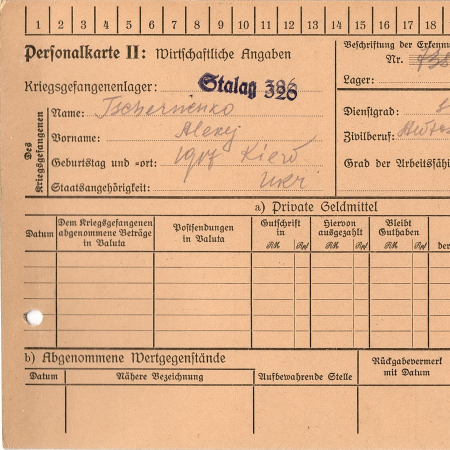 1 2 3 4 5 6 7 8 9 10 11 12 13 14 15 16 17 18
Personalkarte II: Wirtschaftliche Angaben
Beschriftung der Erkennu
Nr.
Kriegsgefangenenlager: Stalag 326
Lager:
Des Kriegsgefangenen
Name: Tschernenko
Vorname: Alexej
Geburtstag und =ort: 1907 Kiew
Staatsangehörigkeit: Ukr
Dienstgrad:
Zivilberuf:
Grad der Arbeitsfäh
a) Private Geldmittel
Datum
Dem Kriegsgefangenen abgenommene Beträge in Valuta
Postsendungen in Valuta
Gutschrift in
RM Rpf
Hiervon ausgezahlt
RM Rpf
Bleibt Guthaben
RM Rpf
der
b) Abgenommene Wertgegenstände
Datum
Nähere Bezeichnung
Aufbewahrende Stelle
Rückgabevermerk mit Datum